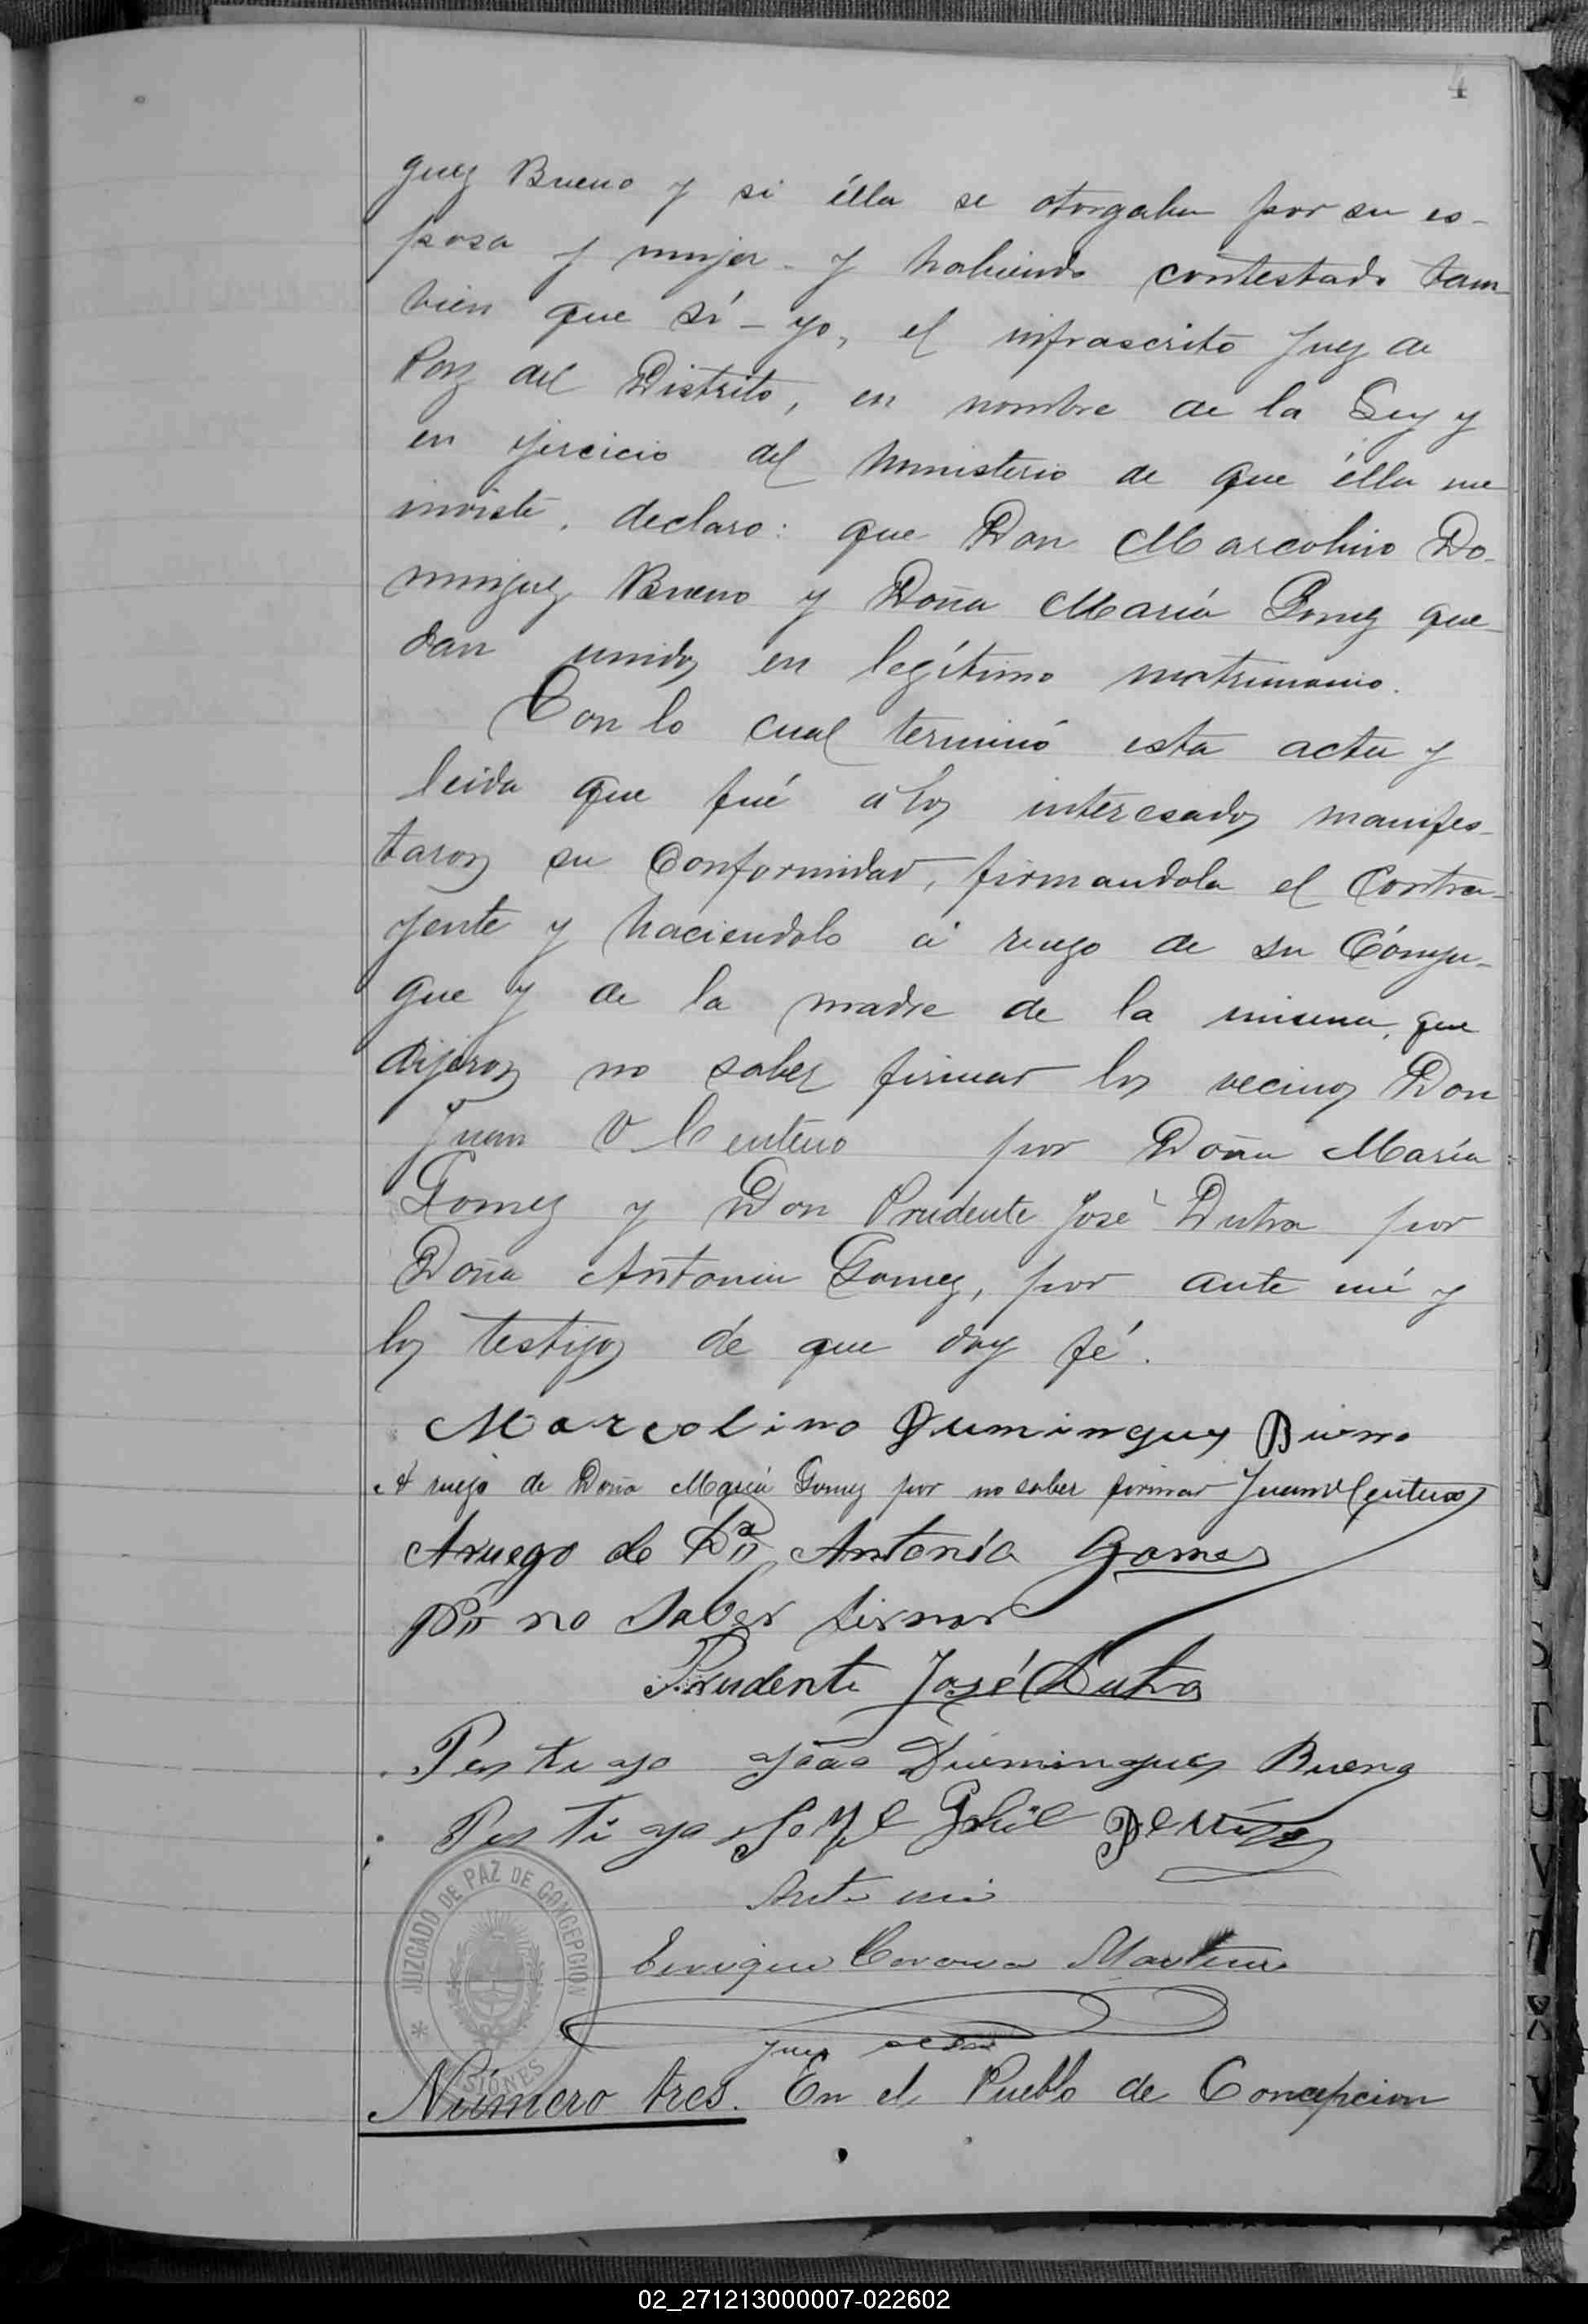 4
guez Bueno y si élla se otorgaba por su es-
posa y mujer - y habiendo contestado tam-
bien que sí - yo, el infrascrito Juez de
Paz del Distrito, en nombre de la Ley y
en ejercicio del ministerio de que élla me
inviste, declaro: que Don Marcolino Do-
minguez Bueno y Doña María Gomez que-
dan unidos en legítimo matrimonio.
Con lo cual terminó esta acta y
leida que fué a los interesados manifes-
taron su Conformidad, firmandola el Contra-
yente y haciendolo á ruego de su Cónyu-
gue y de la madre de la misma, que
dijeron no saber firmar los vecinos Don
Juan V Centeno por Doña María
Gomez y Don Prudente José Dutra por
Doña Antonia Gomez, por ante mí y
los testigos de que doy fé.
Marcolino Duminguez Bueno
A ruego de Doña María Gomez por no saber firmar Juan V Centeno
Aruego de Dña Antonía Gomes
por no saber firmar
Prudente José Dutra
Testigo João Duemingues Bueno
Testigo José
Ante mi
Enrique Corona Martinez
Juez
JUZGADO DE PAZ DE CONCEPCION
MISIONES
Número tres. En el Pueblo de Concepcion
02_271213000007-022602